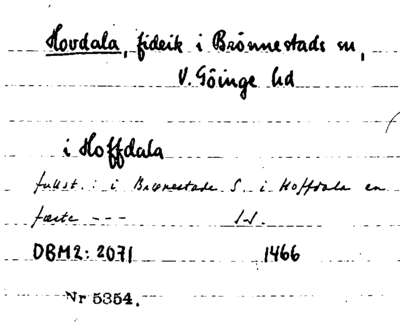 Hovdala, fideik i Brönnestads sn,
V. Göinge hd
i Hoffdala
fullst.: i Brønestade S. i Hoffdala en
fæste ---
DBM2: 2071 1466
Nr 5354.